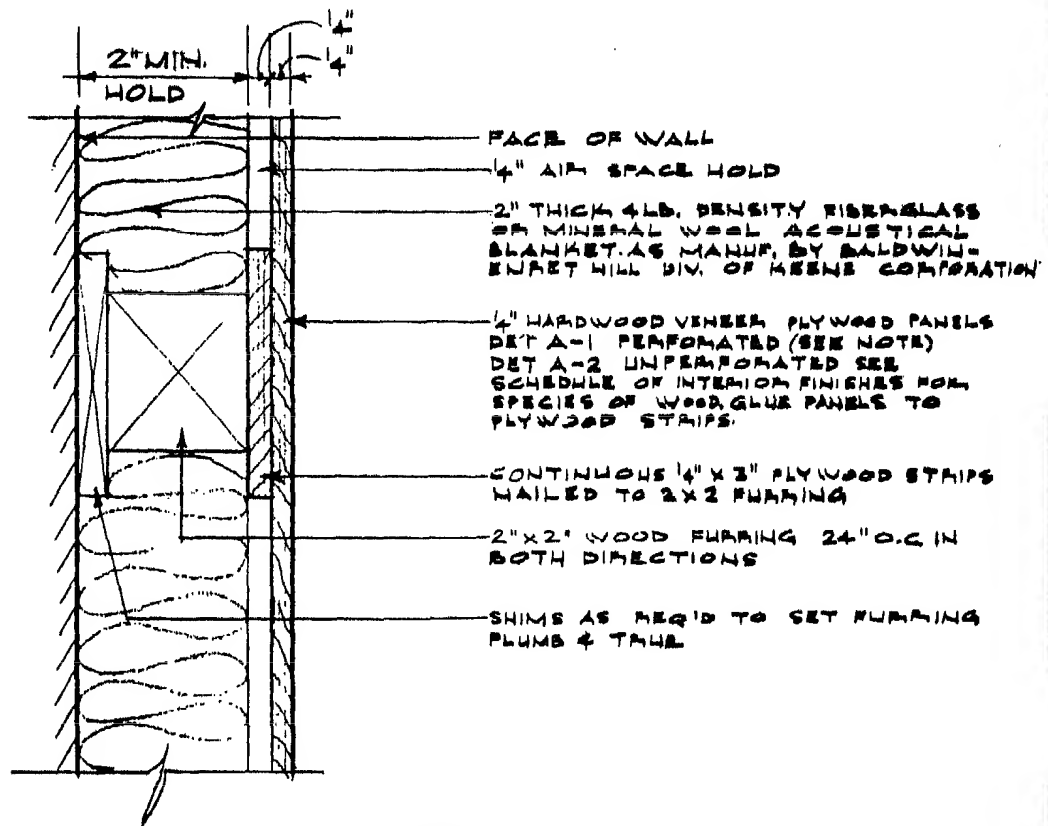 1/4"
1/4"
2" MIN.
HOLD
FACE OF WALL
1/4" AIR SPACE HOLD
2" THICK, 4 LB. DENSITY FIBERGLASS
OR MINERAL WOOL ACOUSTICAL
BLANKET. AS MANUF. BY BALDWIN-
EHRET HILL DIV. OF KEENE CORPORATION
1/4" HARDWOOD VENEER PLYWOOD PANELS
DET A-1 PERFORATED (SEE NOTE)
DET A-2 UNPERFORATED SEE
SCHEDULE OF INTERIOR FINISHES FOR
SPECIES OF WOOD, GLUE PANELS TO
PLYWOOD STRIPS.
CONTINUOUS 1/4" X 3" PLYWOOD STRIPS
NAILED TO 2X2 FURRING
2" X 2" WOOD FURRING 24" O.C. IN
BOTH DIRECTIONS
SHIMS AS REQ'D TO SET FURRING
PLUMB & TRUE